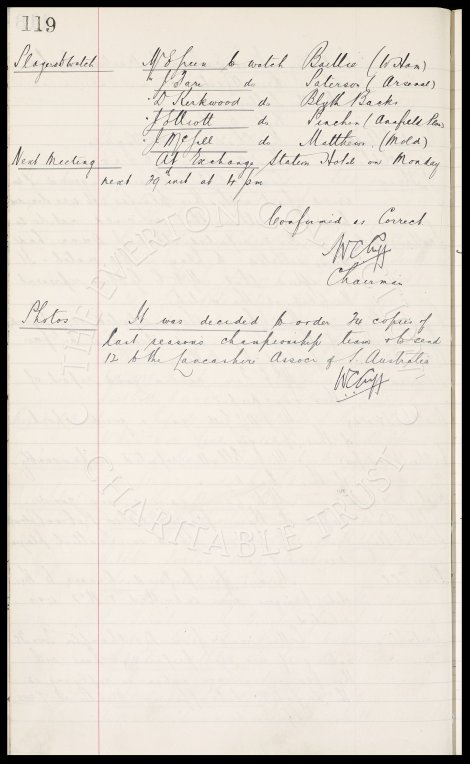 119
Players to Watch Mr E Green to watch Baillie (W. Ham)
" J. Fare do Paterson (Arsenal)
" D Kirkwood do Blyth Backs
" J Elliott do Pinchen (Anafield Plan)
" J McGill do Matthews. (Mold)
Next Meeting At Exchange Station Hotel on Monday
next 29th inst at 4 pm
Confirmed as Correct.
W C Cuff
Chairman
Photos It was decided to order 24 copies of
last seasons championship team & to send
12 to the Lancashire Assocn of S. Australia
W C Cuff
THE EVERTON COLLECTION
CHARITABLE TRUST